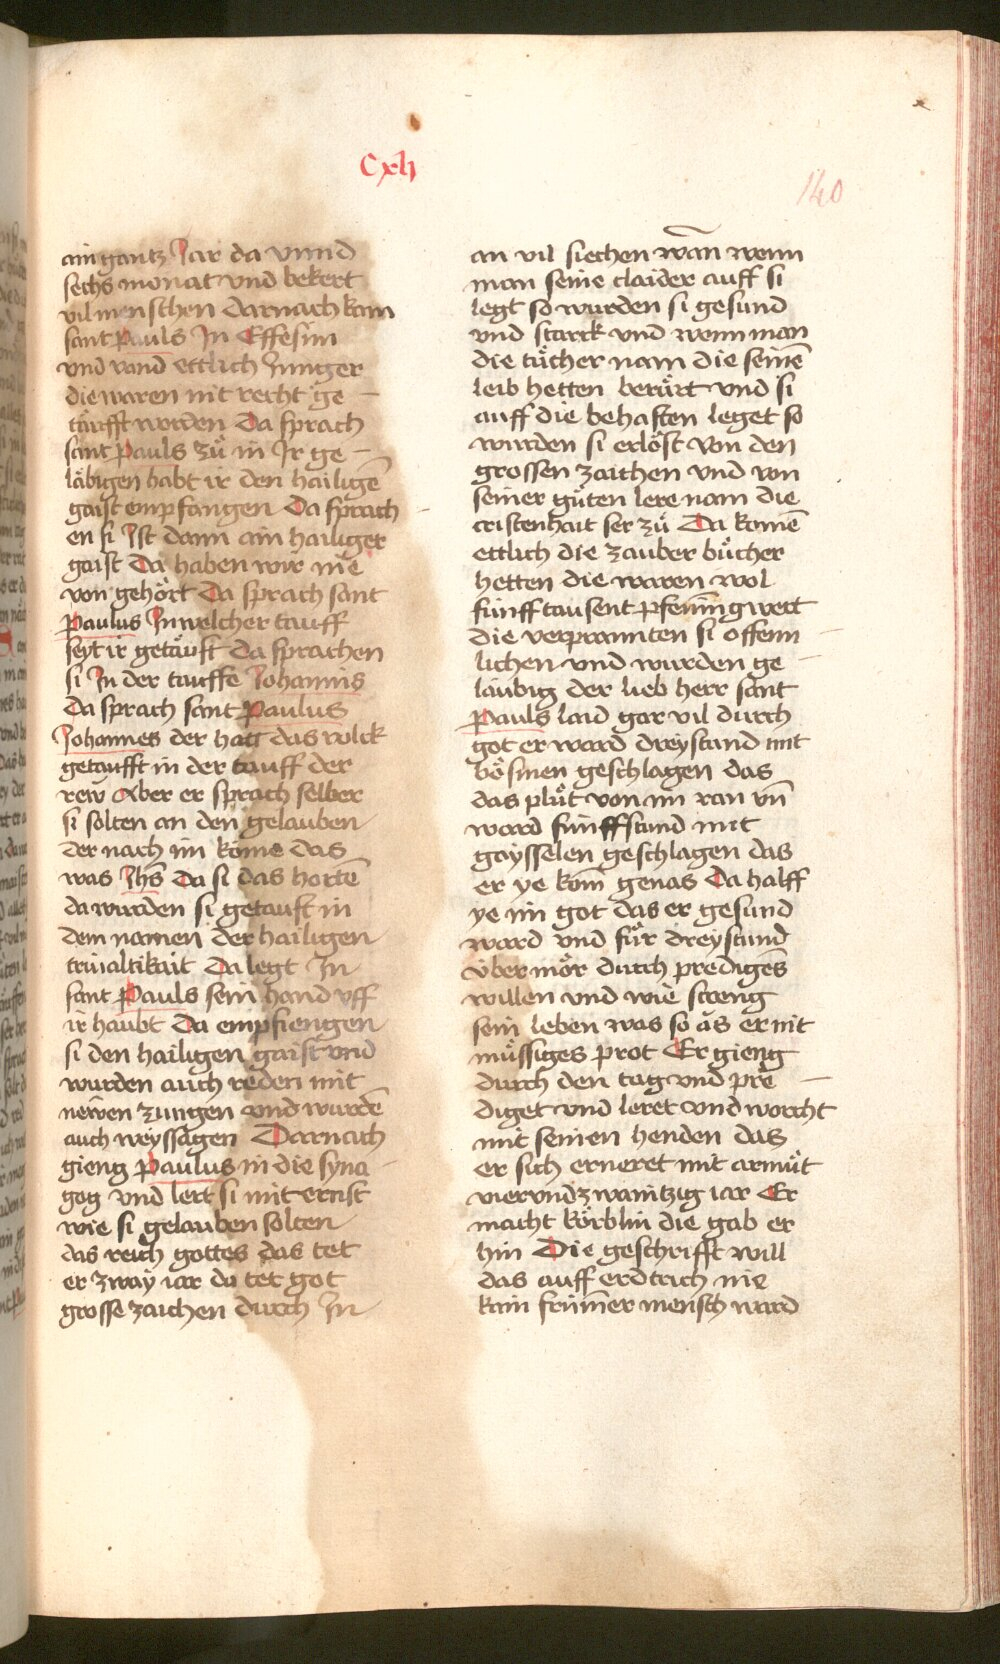 Cxlj
140
ain gantz Jar da vnnd
sechs monat vnd bekert
vil menschen darnach kam
sant Pauls Jn Effesim
vnd vand ettlich Junger
die waren nit recht ge
täufft worden Da sprach
sant Pauls zů in Jr ge
läbigen habt ir den hailigē
gaist empfangen Da sprach
en si Jst dann ain hailiger
gaist Da haben wir nie
von gehört Da sprach sant
Paulus Jn welcher tauff
seyt ir getäuft da sprachen
si Jn der tauffe Johannis
Da sprach sant Paulus
Johannes der hatt das volck
getaufft in der tauff der
rew Aber er sprach selber
si solten an den gelauben
der nach im köme das
was Jhs̄ Da si das hortē
da wurden si getauft in
dem namen der hailigen
triualtikait Da legt Jn
sant Pauls sein hand vff
ir haubt Da empfiengen
si den hailigen gaist vnd
wurden auch reden mit
newen zungen vnd wurdē
auch weyssagen Darnach
gieng Paulus in die syna
gog vnd lert si mit ernst
wie si gelauben solten
das reich gottes das tet
er zway iar da tet got
grosse zaichen durch Jn
an vil siechen wān wenn
man seine claider auff si
legt so wurden si gesund
vnd starck vnd wenn man
die tücher nam die seinē
leib hetten berürt vnd si
auff die behaften leget so
wurden si erlöst von den
grossen zaichen vnd von
seiner gůten lere nam die
cristenhait ser zů Da komē
ettlich die zauber bücher
hetten die waren wol
funff tausent pfening wert
die verprannten si offenn
lichen vnd wurden ge
laubig der lieb herr sant
Pauls laid gar vil durch
got er ward dreystund mit
bösmen geschlagen das
das plůt von im ran vn̄
ward funffstund mit
gaysselen geschlagen das
er ye kom̄ genas Da halff
ye im got das er gesund
ward vnd für dreystund
über mör durch predigēs
willen vnd wie streng
sein leben was so as er nit
müssiges prot Er gieng
durch den tag vnd pre
diget vnd leret vnd worcht
mit seinen henden das
er sich erneret mit armůt
viervndzwaintzig iar Er
macht körblin die gab er
hin Die geschrifft will
das auff erdtrich nie
kain frümer mensch ward